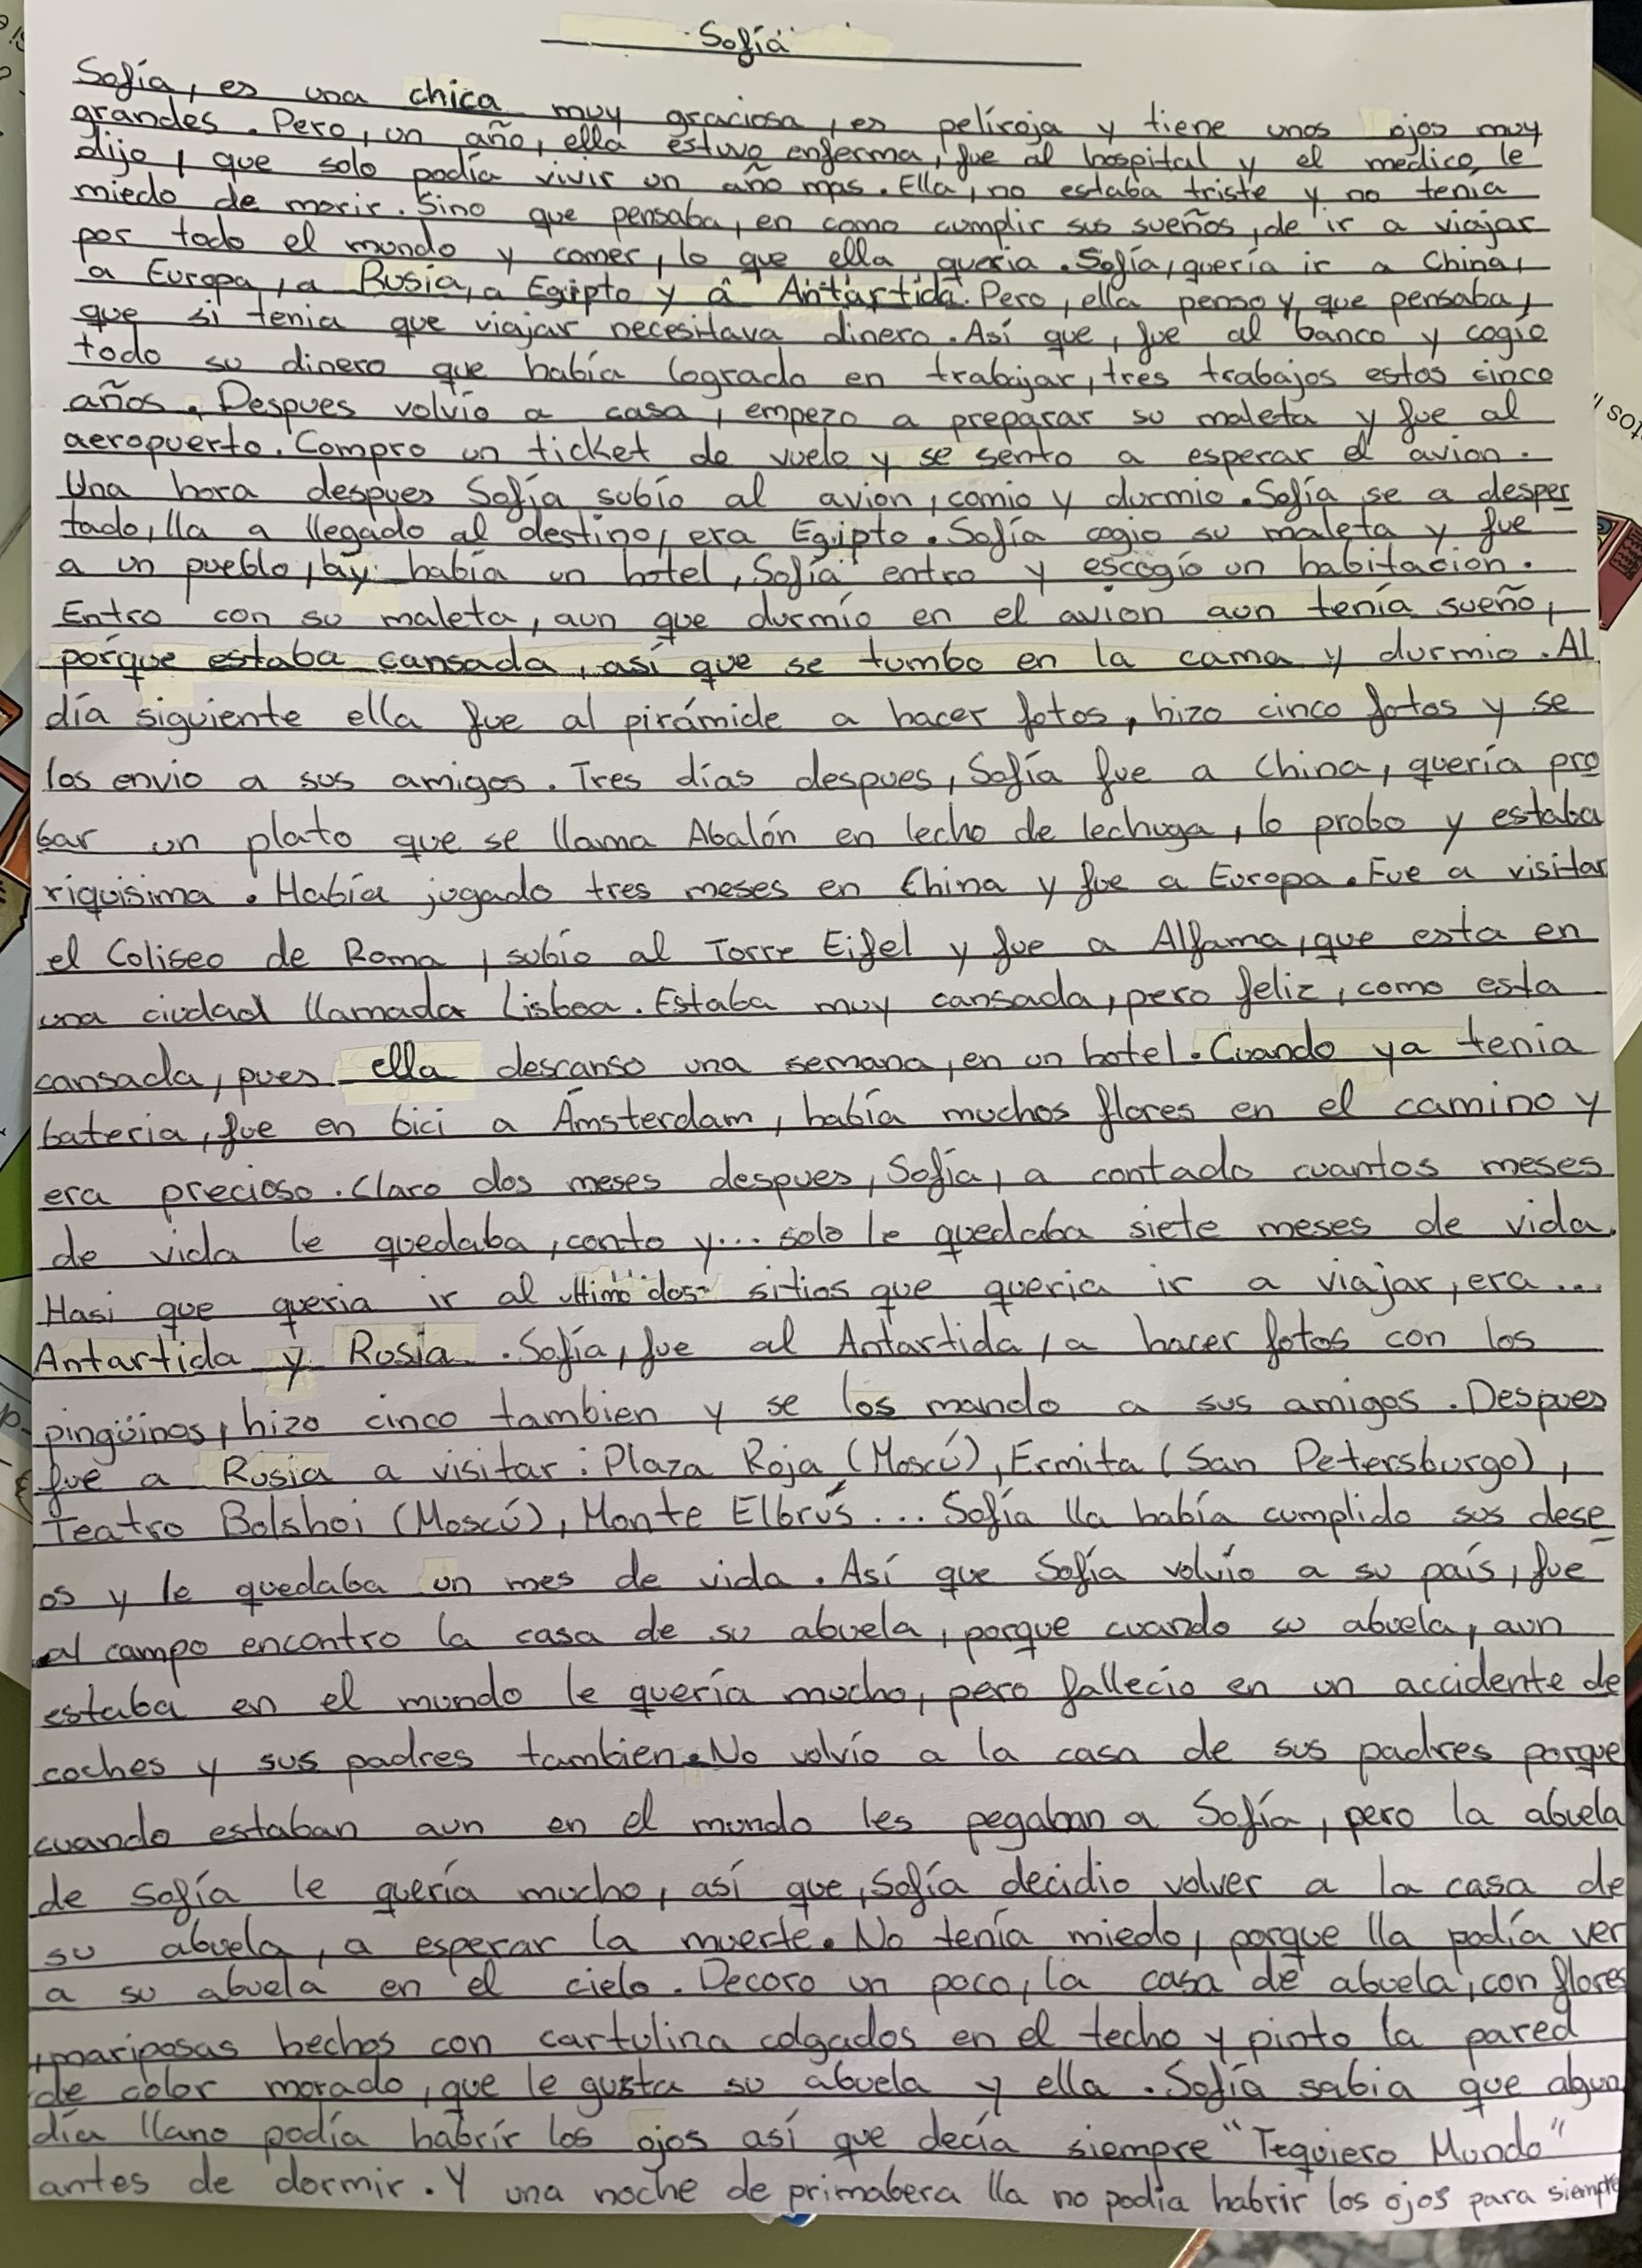 Sofía
Sofía, es una chica muy graciosa, es pelíroja y tiene unos ojos muy
grandes. Pero, un año, ella estuvo enferma, fue al hospital y el medico le
dijo, que solo podía vivir un año mas. Ella, no estaba triste y no tenía
miedo de morir. Sino que pensaba, en como cumplir sus sueños, de ir a viajar
por todo el mundo y comer, lo que ella queria. Sofía, quería ir a China,
a Europa, a Rusia, a Egipto y a Antártida. Pero, ella penso y, que pensaba,
que si tenia que viajar necesitava dinero. Así que, fue al banco y cogío
todo su dinero que había logrado en trabajar, tres trabajos estos cinco
años. Despues volvío a casa, empezo a preparar su maleta y fue al
aeropuerto. Compro un ticket de vuelo y se sento a esperar el avion.
Una hora despues Sofía subío al avion, comio y durmio. Sofía se a desper
tado, lla a llegado al destino, era Egipto. Sofía cogio su maleta y fue
a un pueblo, ay había un hotel, Sofía entro y escogío un habitacion.
Entro con su maleta, aun que durmío en el avion aun tenía sueño,
porque estaba cansada, así que se tumbo en la cama y durmio. Al
día siguiente ella fue al pirámide a hacer fotos, hizo cinco fotos y se
los envio a sus amigos. Tres días despues, Sofía fue a China, quería pro
bar un plato que se llama Abalón en lecho de lechuga, lo probo y estaba
riquisima. Había jugado tres meses en China y fue a Europa. Fue a visitar
el Coliseo de Roma, subío al Torre Eifel y fue a Alfama, que esta en
una ciudad llamada Lisboa. Estaba muy cansada, pero feliz, como esta
cansada, pues ella descanso una semana, en un hotel. Cuando ya tenia
bateria, fue en bici a Ámsterdam, había muchos flores en el camino y
era precioso. Claro dos meses despues, Sofía, a contado cuantos meses
de vida le quedaba, conto y... solo le quedaba siete meses de vida.
Hasi que queria ir al ultimo dos sitios que queria ir a viajar, era...
Antartida y Rusia. Sofía, fue al Antartida, a hacer fotos con los
pingüinos, hizo cinco tambien y se los mando a sus amigos. Despues
fue a Rusia a visitar: Plaza Roja (Moscú), Ermita (San Petersburgo),
Teatro Bolshoi (Moscú), Monte Elbrús... Sofía lla había cumplido sus dese
os y le quedaba un mes de vida. Así que Sofía volvío a su país, fue
al campo encontro la casa de su abuela, porque cuando su abuela, aun
estaba en el mundo le quería mucho, pero fallecio en un accidente de
coches y sus padres tambien. No volvío a la casa de sus padres porque
cuando estaban aun en el mundo les pegaban a Sofía, pero la abuela
de Sofía le quería mucho, así que, Sofía decidio volver a la casa de
su abuela, a esperar la muerte. No tenía miedo, porque lla podía ver
a su abuela en el cielo. Decoro un poco, la casa de abuela, con flores
, mariposas hechos con cartulina colgados en el techo y pinto la pared
de color morado, que le gusta su abuela y ella. Sofía sabia que algun
día llano podía habrír los ojos así que decía siempre "Tequiero Mundo"
antes de dormir. Y una noche de primabera lla no podía habrir los ojos para siempre